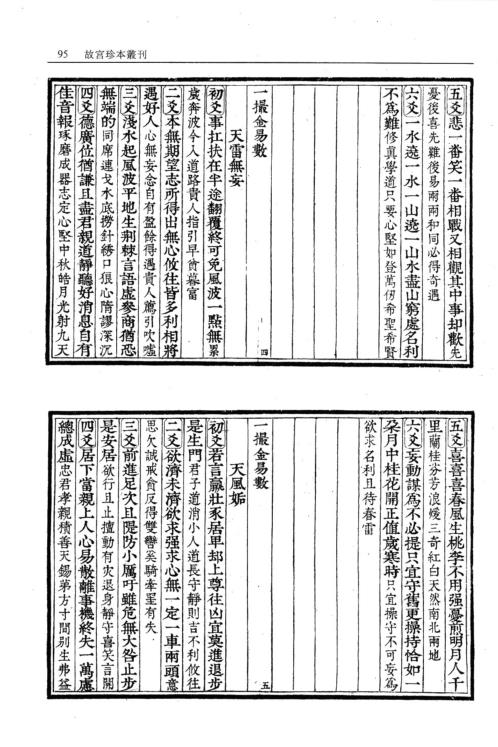 95 故宮珍本叢刊
五爻悲一番笑一番相戰又相觀其中事却歡先
憂後喜先難後易兩兩和同必得奇遇
六爻一水遶一水一山遶一山水盡山窮處名利
不為難修眞學道只要心堅如登萬仞希聖希賢
一撮金易數
四
天雷無妄
初爻事扛扶在半途翻覆終可免風波一點無累
歲奔波今入道路貴人指引早曾暮富
二爻本無期望志所得出無心攸往皆多利相將
遇好人心無妄念自有盈餘得遇貴人薦引吹噓
三爻淺水起風波平地生荆棘言語虛參商猶恐
無端的同席連戈水底撈針綉口狠心隋謬深沉
四爻德廣位猶謙且盡君親道靜聽好消息自有
佳音報琢磨成器志定心堅中秋皓月光射九天
五爻喜喜喜春風生桃李不用强憂煎明月人千
里蘭桂芬芳浪煖三奇紅白天然南北兩地
六爻妄動謀為不必提只宜守舊更操持恰如一
朶月中桂花開正値歲寒時只宜操守不可妄為
欲求名利且待春雷
一撮金易數
五
天風姤
初爻若言羸壯豕居單却上尊往凶莫進退步
是生門君子道消小人道長守靜則吉不利攸往
二爻欲濟未濟欲求强求心無一定一車兩頭意
思欠誠戒貪反得雙鸞奚騎牽星有失
三爻前進足次且隄防小厲吁雖危無大咎止步
是安居欲行且止擅動有灾退身靜守喜笑言開
四爻居下當親上人心易散離事機終失一萬慮
總成虛忠君孝親積善天錫弟方寸間别生弗益